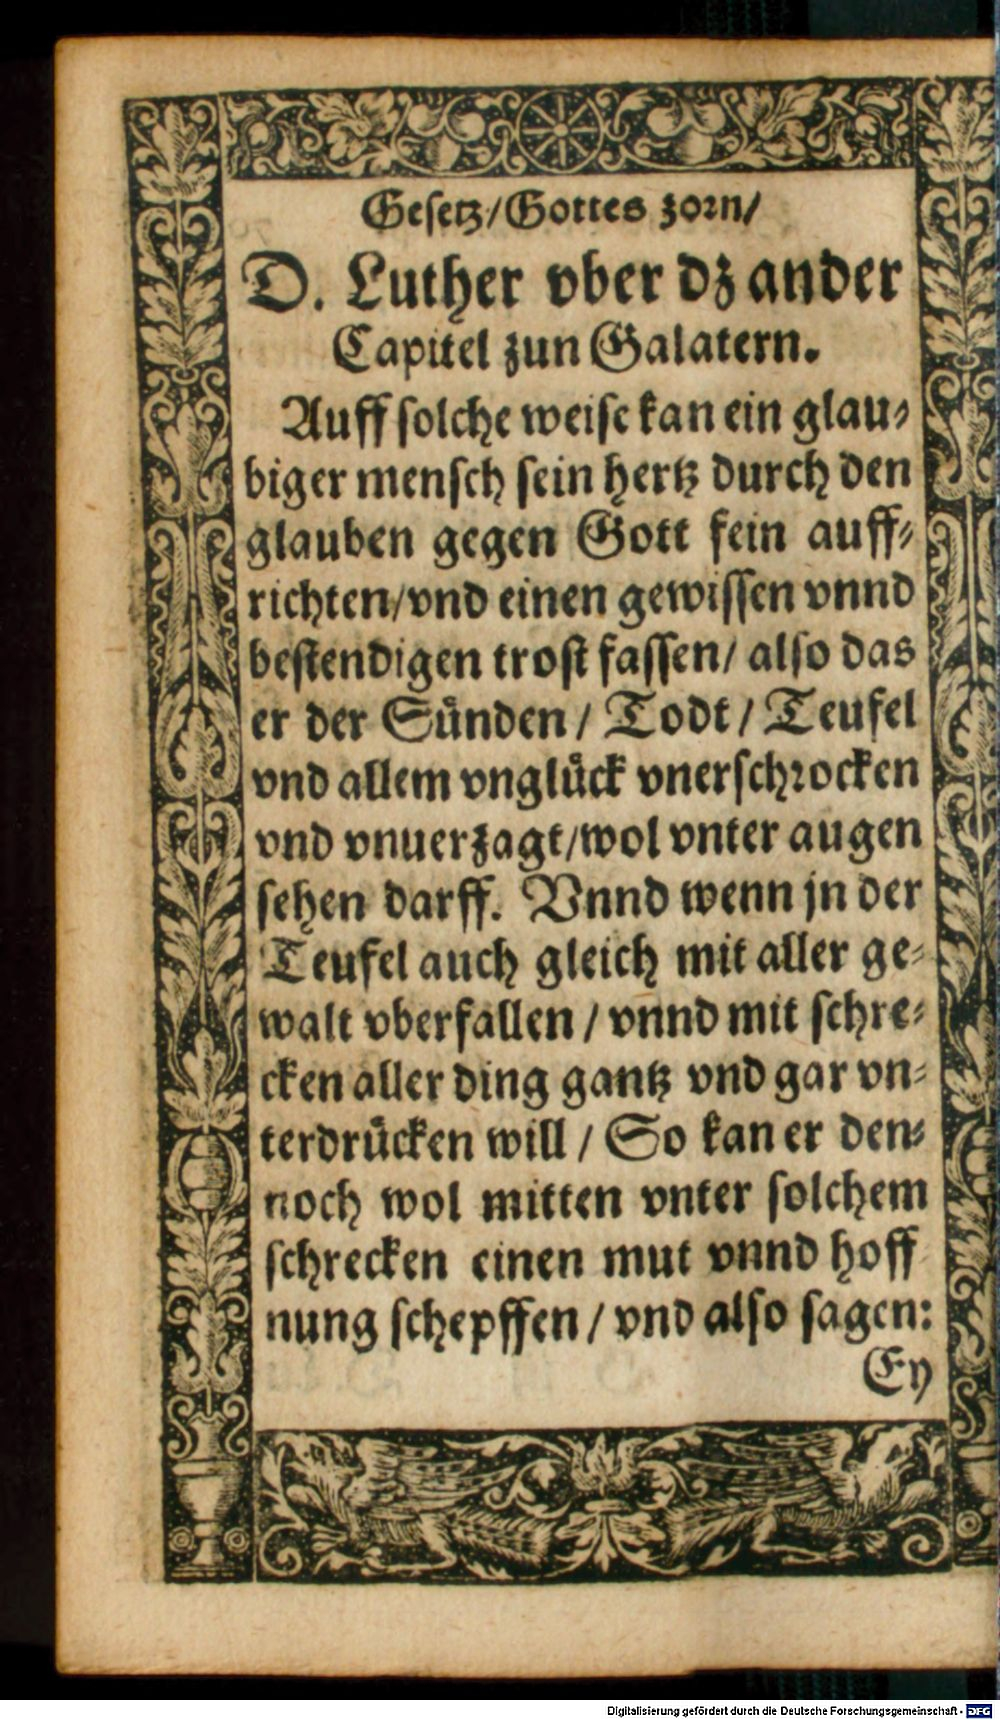 Gesetz/Gottes zorn/
D. Luther vber dz ander
Capitel zun Galatern.
Auff solche weise kan ein glau-
biger mensch sein hertz durch den
glauben gegen Gott fein auff-
richten/vnd einen gewissen vnnd
bestendigen trost fassen/ also das
er der Sünden / Todt / Teufel
vnd allem vnglück vnerschrocken
vnd vnuerzagt/wol vnter augen
sehen darff. Vnnd wenn jn der
Teufel auch gleich mit aller ge-
walt vberfallen / vnnd mit schre-
cken aller ding gantz vnd gar vn-
terdrücken will / So kan er den-
noch wol mitten vnter solchem
schrecken einen mut vnnd hoff
nung schepffen / vnd also sagen:
Ey
Digitalisierung gefördert durch die Deutsche Forschungsgemeinschaft - DFG